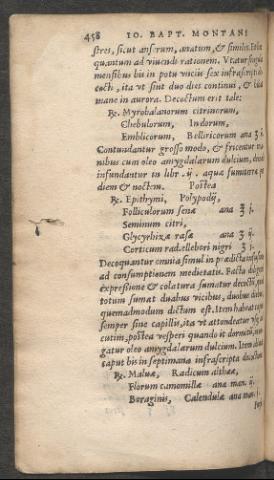 458 IO. BAPT. MONTANI
stres, sicut anserum, anatum, & similes. Et hæc
quantum ad viuendi rationem. Vtatur singulis
mensibus bis in potu vnciis sex infrascripti de-
cocti, ita vt sint duo dies continui, & bibat
mane in aurora. Decoctum erit tale:
℞. Myrobalanorum citrinorum,
Chebulorum, Indorum,
Emblicorum, Bellericorum ana ℥ j.
Contundantur grosso modo, & fricentur
nibus cum oleo amygdalarum dulcium, deinde
infundantur in libr. ij. aquæ fumiterræ per
diem & noctem. Postea
℞. Epithymi, Polypodij,
Folliculorum senæ ana ℥ j.
Seminum citri,
Glycyrhizæ rasæ ana ʒ ij.
Corticum rad. ellebori nigri ʒ j.
Decoquantur omnia simul in prædicta infusione
ad consumptionem medietatis. Facta diligenti
expressione & colatura sumatur decocti,
totum sumat duabus vicibus, duobus diebus
quemadmodum dictum est. Item habeat caput
semper sine capillis, ita vt attondeatur vsque ad
cutim, postea vesperi quando it dormitum,
gatur oleo amygdalarum dulcium. Item
caput bis in septimana infrascripta decoctione
℞. Maluæ, Radicum altheæ,
Florum camomillæ ana man. ij.
Boraginis, Calendulæ ana man. j.